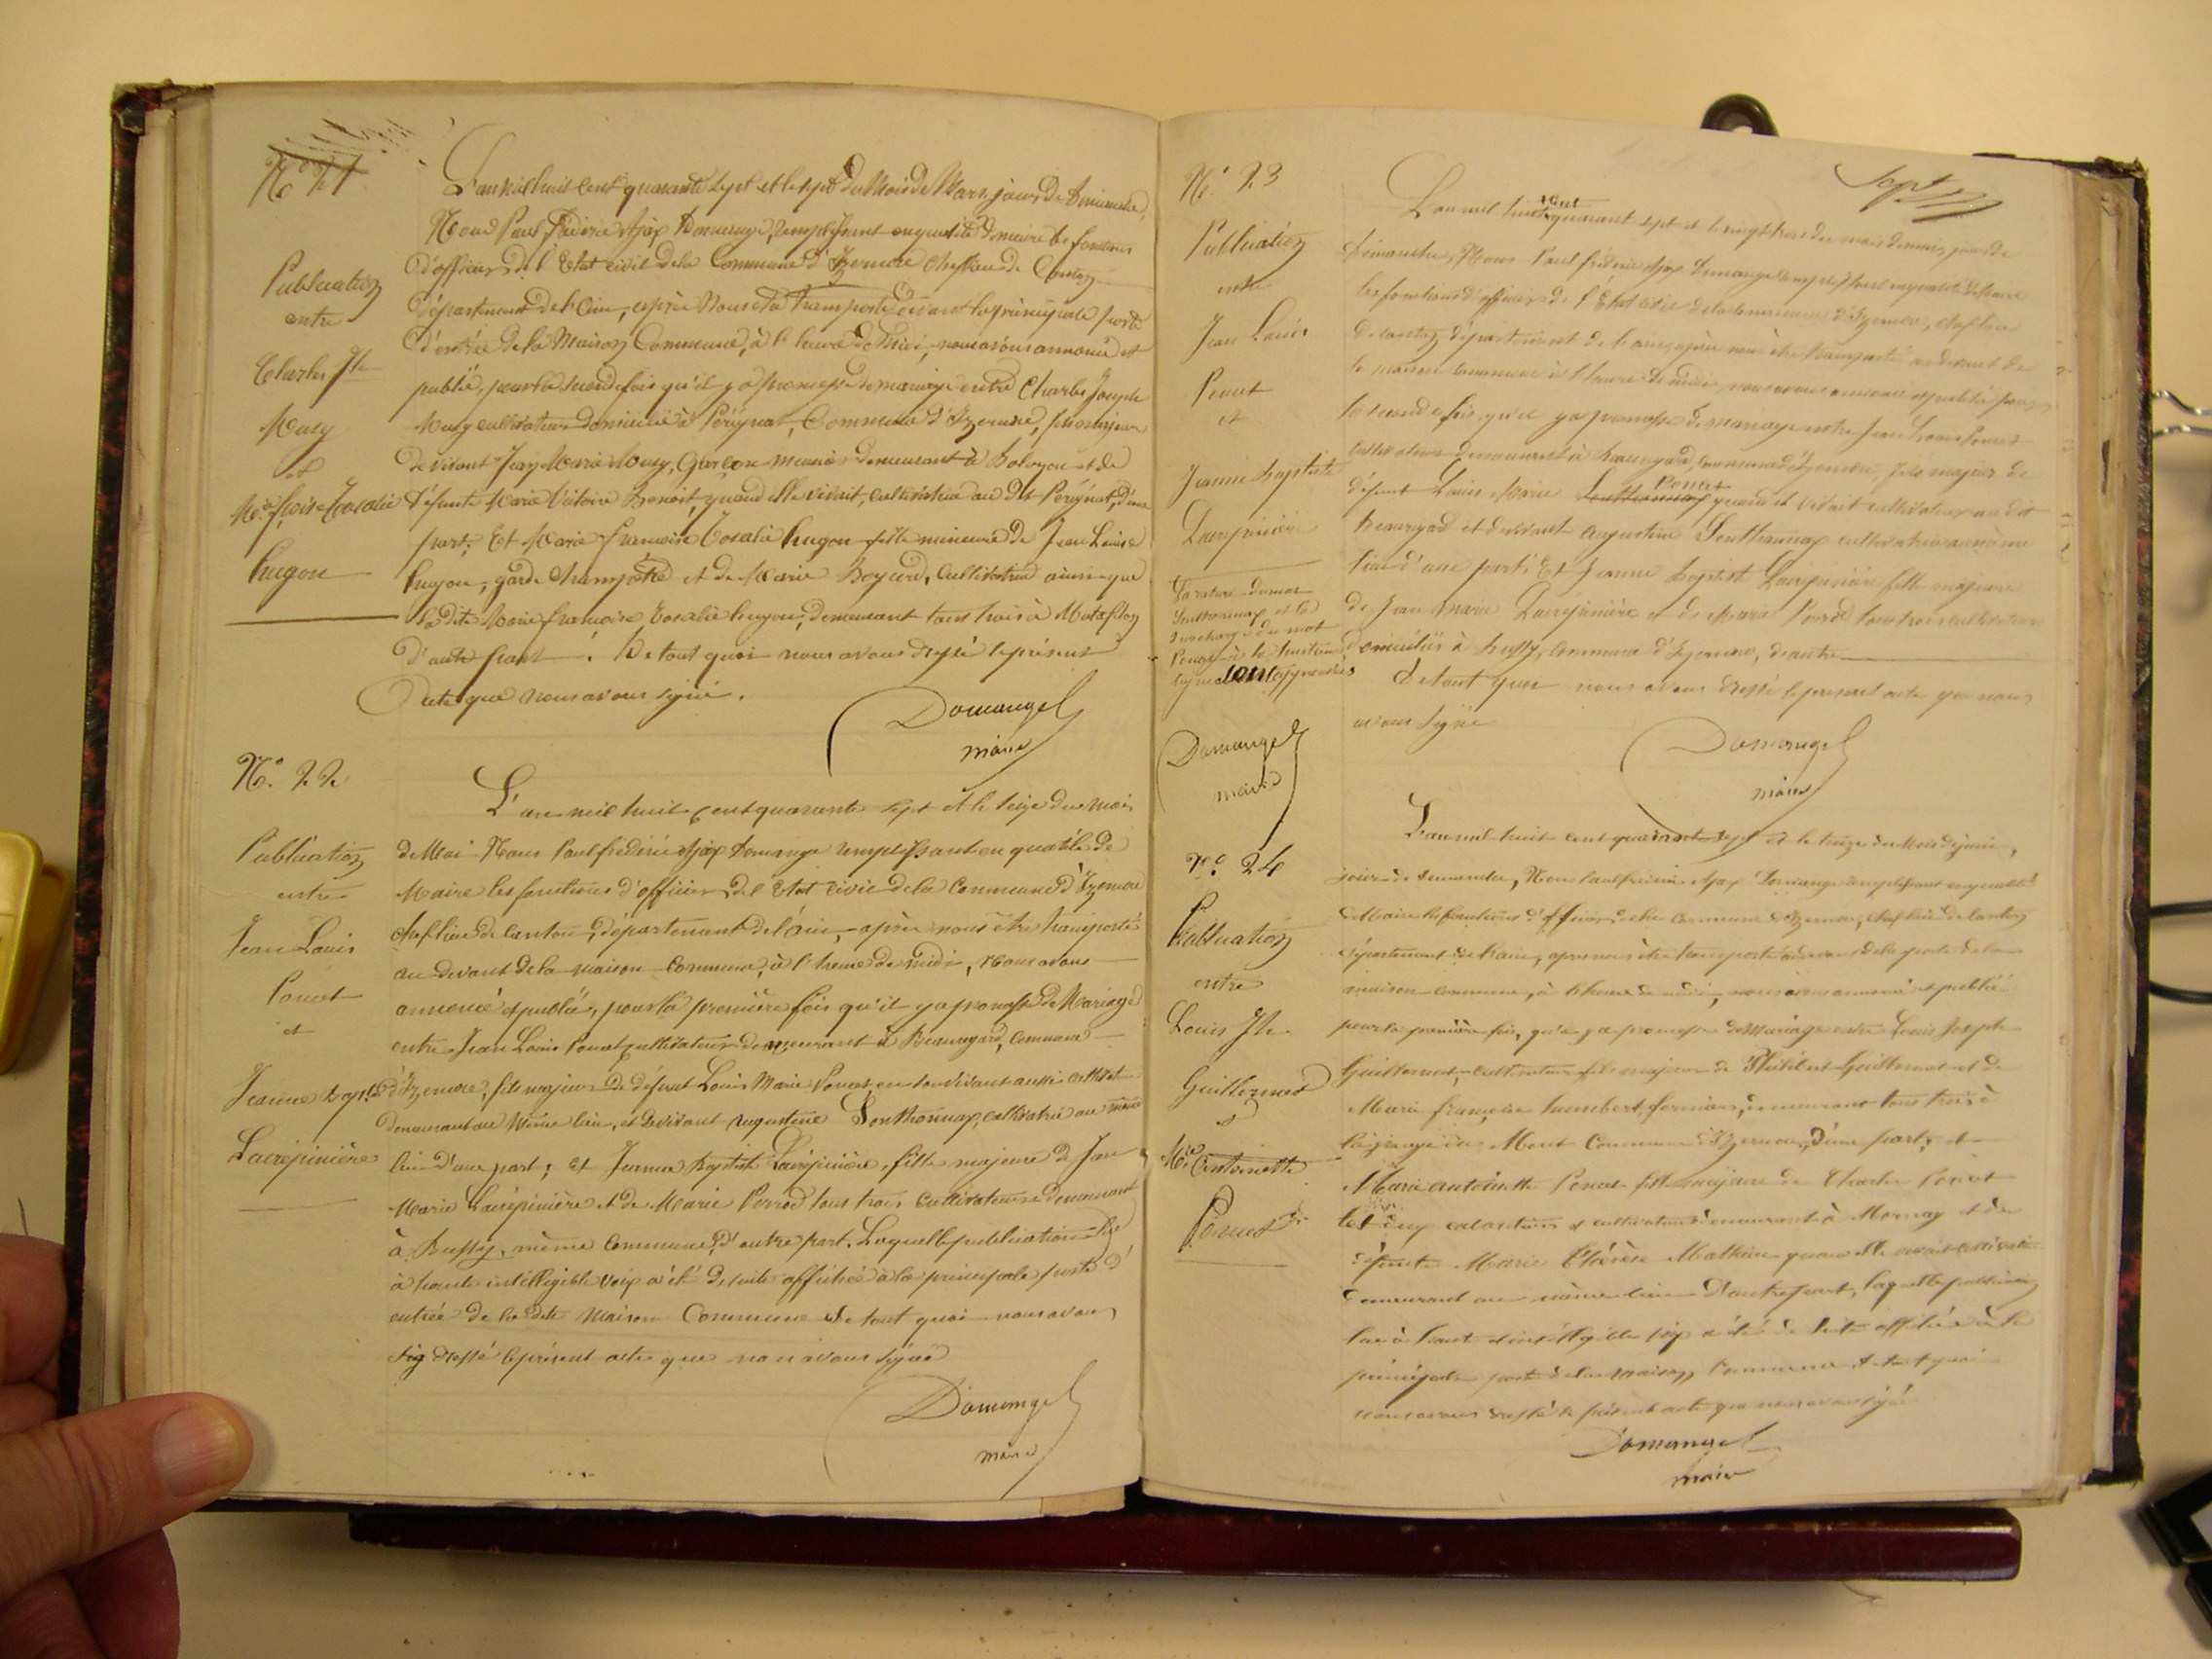 N.° 21
Publication
entre
Charles Jh
Mury
et
M.ie f.çoise Rosalie
Hugon
L'an mil huit cent quarante sept et le sept du mois de Mars, jour de Dimanche,
Nous Paul Fréderic Ajax Domange, remplissant en qualité de maire les fonctions
d'officier de l'Etat civil de la Commune d'Izernore Cheflieu de Canton
département de l'Ain, après nous être transporté devant la principale porte
d'entrée de la Maison Commune, à l'heure de Midi, nous avons annoncé et
publié, pour la seconde fois qu'il y a promesse de mariage entre Charles Joseph
Mury cultivateur domicilié à Pérignat, Commune d'Izernore, fils majeur
de vivant Jean Marie Mury, Garçon meunier demeurant à et de
défunte Marie Victoire Benoit, quand elle vivait, cultivatrice au dit Pérignat, d'une
part; Et Marie françoise Rosalie hugon fille mineure de Jean Louis
hugon, garde champêtre et de Marie Boyard, Cultivatrice ainsi que
la dite Marie françoise Rosalie hugon, demeurant tous trois à Matafelon
d'autre part. De tout quoi nous avons dressé le présent
acte que nous avons signé.
Domange
maire
N.° 22
Publication
entre
Jean Louis
Poncet
et
Jeanne Bapt.te
Lacrépinière
L'an mil huit cent quarante sept et le seize du mois
de Mai Nous Paul fréderic Ajax Domange remplissant en qualité de
Maire les fonctions d'officier de l'Etat civil de la Commune d'Izernore
cheflieu de canton, département de l'ain, après nous être transporté
au devant de la maison commune, à l'heure de midi, nous avons
annoncé et publié, pour la première fois qu'il y a promesse de Mariage
entre Jean Louis Poncet cultivateur demeurant à Beauregard, Commune
d'Izernore, fils majeur de défunt Louis Marie Poncet en son vivant aussi cultivat
demeurant au même lieu, et de vivant Augustine Sonthonnax, cultivatrice au même
lieu d'une part; Et Jeanne Baptiste Lacrépinière, fille majeure de Jean
Marie Lacrépinière et de Marie Perrod tous trois cultivateurs demeurant
à Bussy, même Commune, d'autre part. Laquelle publication lue
à haute intelligible voix a été de suite affichée à la principale porte d'
entrée de la dite Maison Commune De tout quoi nous avons
sig dressé le présent acte que nous avons signé
Domange
maire
Sept
N.° 23
Publication
entre
Jean Louis
Poncet
et
Jeanne baptiste
Lacrépinière
La rature du mot
Sonthonnax et la
surcharge du mot
Poncet à la huitième
ligne sont approuvées
Domange
maire
L'an mil huit cent quarant sept et le vingt trois du mois de mai, jour de
dimanche, Nous Paul fréderic Ajax Domange remplissant en qualité de maire
les fonctions d'officier de l'Etat civil de la Commune d'Izernore, chef lieu
de canton, département de l'ain, après nous être transporté au devant de
la maison commune à l'heure de midi, nous avons annoncé et publié pour
la seconde fois qu'il y a promesse de mariage entre Jean Louis Poncet
cultivateur demeurant à beauregard, commune d'Izernore, fils majeur de
défunt Louis Marie Sonthonnax Poncet quand il vivait cultivateur au dit
beauregard et de vivant Augustine Sonthonnax cultivatrice au même
lieu d'une part; Et Jeanne baptiste Lacrépinière fille majeure
de Jean Marie Lacrépinière et de Marie Perrod tous trois cultivateurs
domiciliés à bussy, commune d'Izernore, d'autre
De tout quoi nous avons dressé le présent acte que nous
avons signé
Domange
maire
N.° 24
Publication
entre
Louis Jh
Guillermet
et
M.ie Antoinette
Poncet
L'an mil huit cent quarante sept et le treize du Mois de juin,
jour de dimanche, Nous Paul fréderic Ajax Domange remplissant en qualité
de Maire les fonctions d'officier de la commune d'Izernore, chef lieu de canton
département de l'ain, après nous être transporté au devant de la porte de la
maison commune, à l'heure de midi, nous avons annoncé et publié
pour la première fois, qu'il y a promesse de Mariage entre Louis Joseph
Guillermet, cultivateur fils majeur de Philibert Guillermet et de
Marie françoise humbert, fermiers, demeurant tous trois à
la grange du Mont Commune d'Izernore, d'une part; et
Marie antoinette Poncet fille majeure de Charles Poncet
les deux cultivateurs demeurant à Mornay et de
défunte Marie Thérèse Mathieu quand elle vivait cultivatrice
demeurant au même lieu d'autre part, laquelle publication
lue à haute et intelligible voix a été de suite affichée à la
principale porte de la maison commune De tout quoi
nous avons dressé le présent acte que nous avons signé
Domange
maire